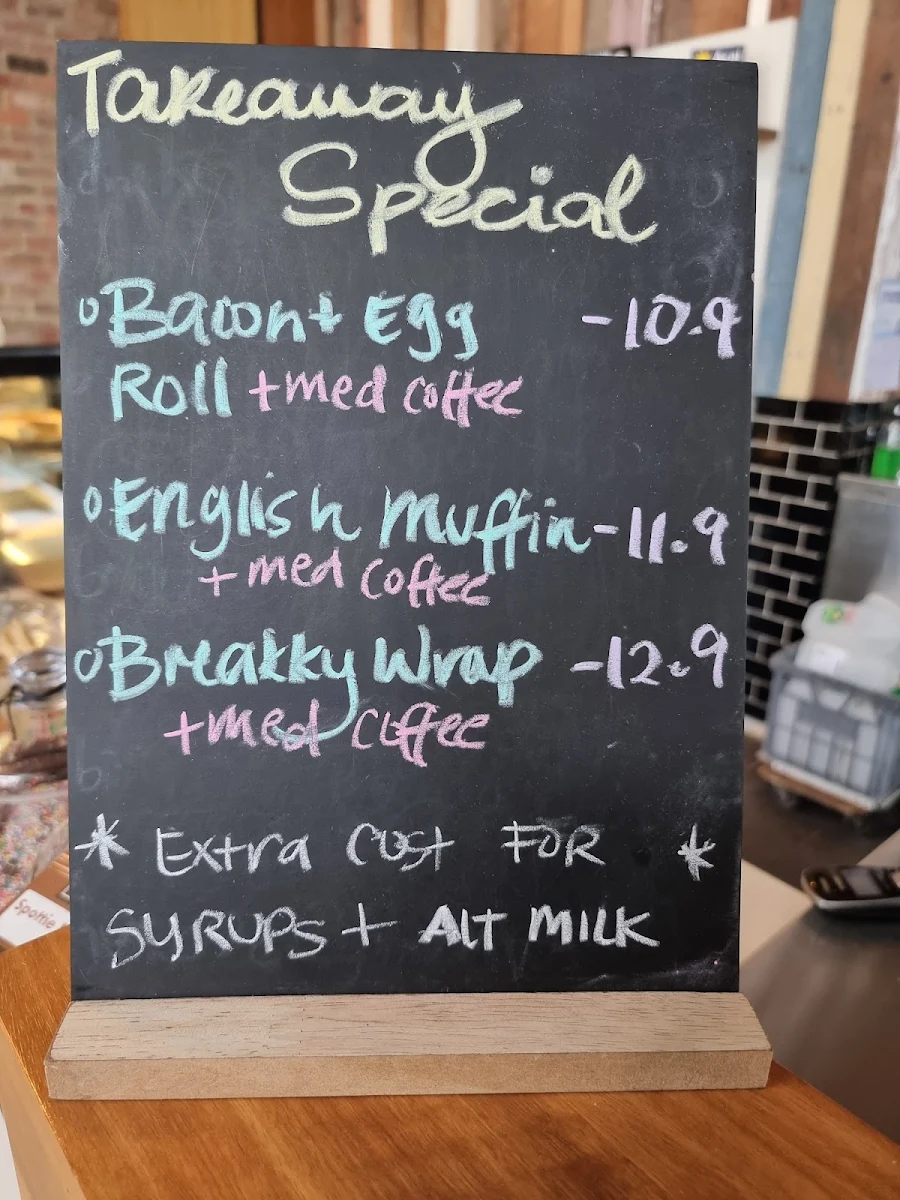 Takeaway
Special
o Bacon + Egg -10.9
Roll + med coffee
o English Muffin -11.9
+ med coffee
o Breakky Wrap -12.9
+ med coffee
* Extra Cost FOR *
SYRUPS + ALT MILK